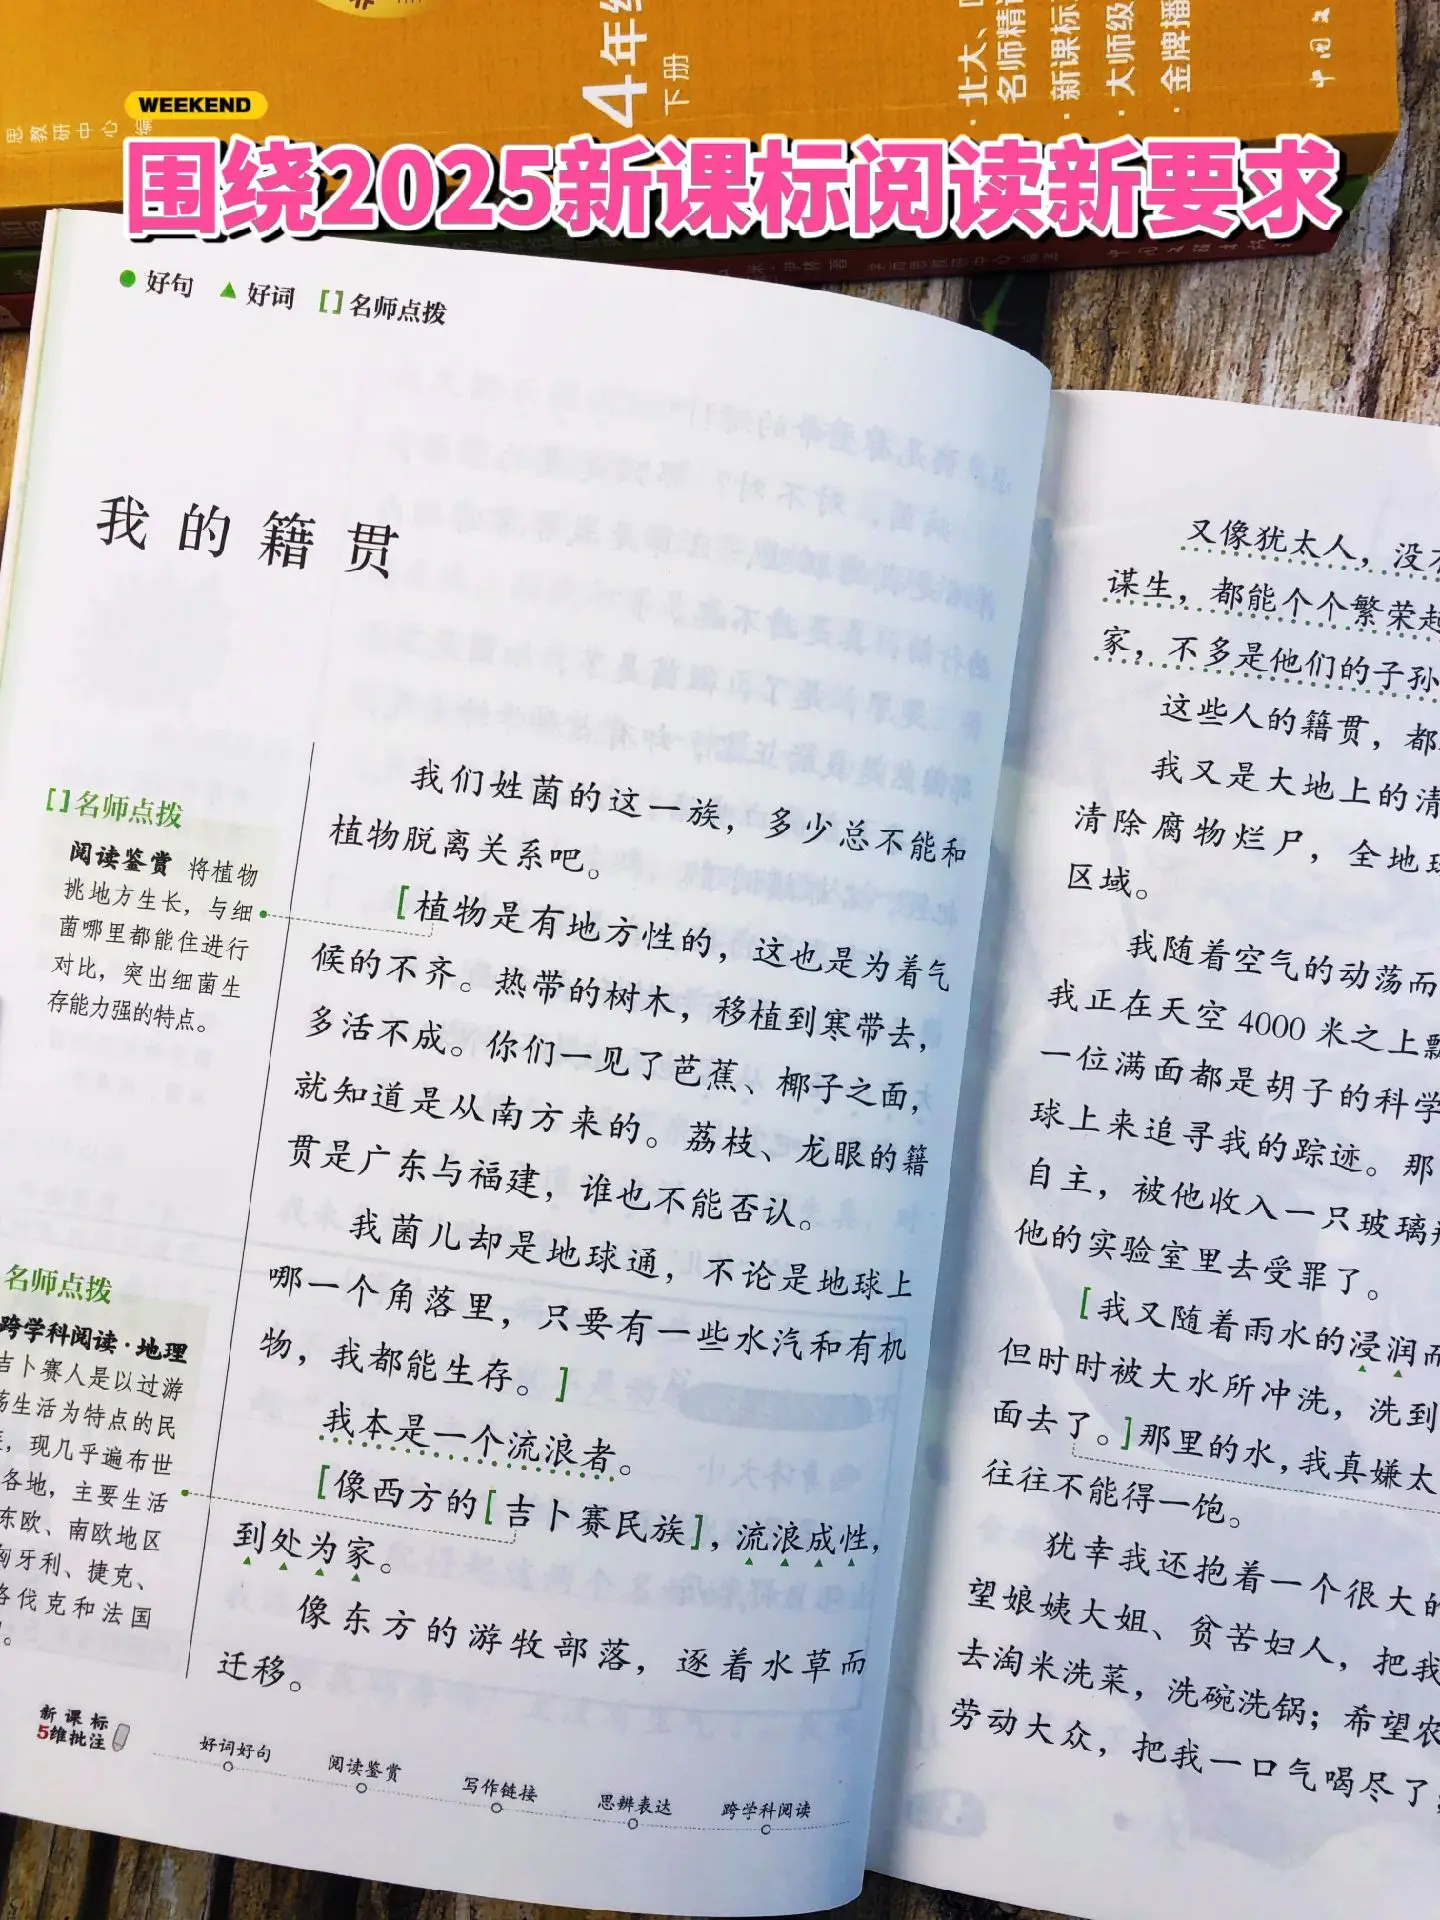 4年级
下册
北大、
名师精讲
新课标
·大师级
·金牌播
中国文
WEEKEND
思教研中心 编
围绕2025新课标阅读新要求
米·伊林 著 学而思教研中心 编
●好句 ▲好词 []名师点拨
我的籍贯
我们姓菌的这一族，多少总不能和
植物脱离关系吧。
[植物是有地方性的，这也是为着气
候的不齐。热带的树木，移植到寒带去，
多活不成。你们一见了芭蕉、椰子之面，
就知道是从南方来的。荔枝、龙眼的籍
贯是广东与福建，谁也不能否认。
我菌儿却是地球通，不论是地球上
哪一个角落里，只要有一些水汽和有机
物，我都能生存。]
我本是一个流浪者。
[像西方的[吉卜赛民族]，流浪成性，
到处为家。
像东方的游牧部落，逐着水草而
迁移。
[]名师点拨
阅读鉴赏 将植物
挑地方生长，与细
菌哪里都能住进行
对比，突出细菌生
存能力强的特点。
名师点拨
跨学科阅读·地理
吉卜赛人是以过游
荡生活为特点的民
，现几乎遍布世
各地，主要生活
东欧、南欧地区
匈牙利、捷克、
洛伐克和法国
。
新课标
5维批注
好词好句
阅读鉴赏
写作链接
思辨表达
跨学科阅读
又像犹太人，没
谋生，都能个个繁荣起
家，不多是他们的子孙
这些人的籍贯，都
我又是大地上的清
清除腐物烂尸，全地球
区域。
我随着空气的动荡而
我正在天空4000米之上飘
一位满面都是胡子的科学
球上来追寻我的踪迹。那
自主，被他收入一只玻璃瓶
他的实验室里去受罪了。
[我又随着雨水的浸润而
但时时被大水所冲洗，洗到
面去了。]那里的水，我真嫌太
往往不能得一饱。
犹幸我还抱着一个很大的
望娘姨大姐、贫苦妇人，把我
去淘米洗菜，洗碗洗锅；希望农
劳动大众，把我一口气喝尽了，